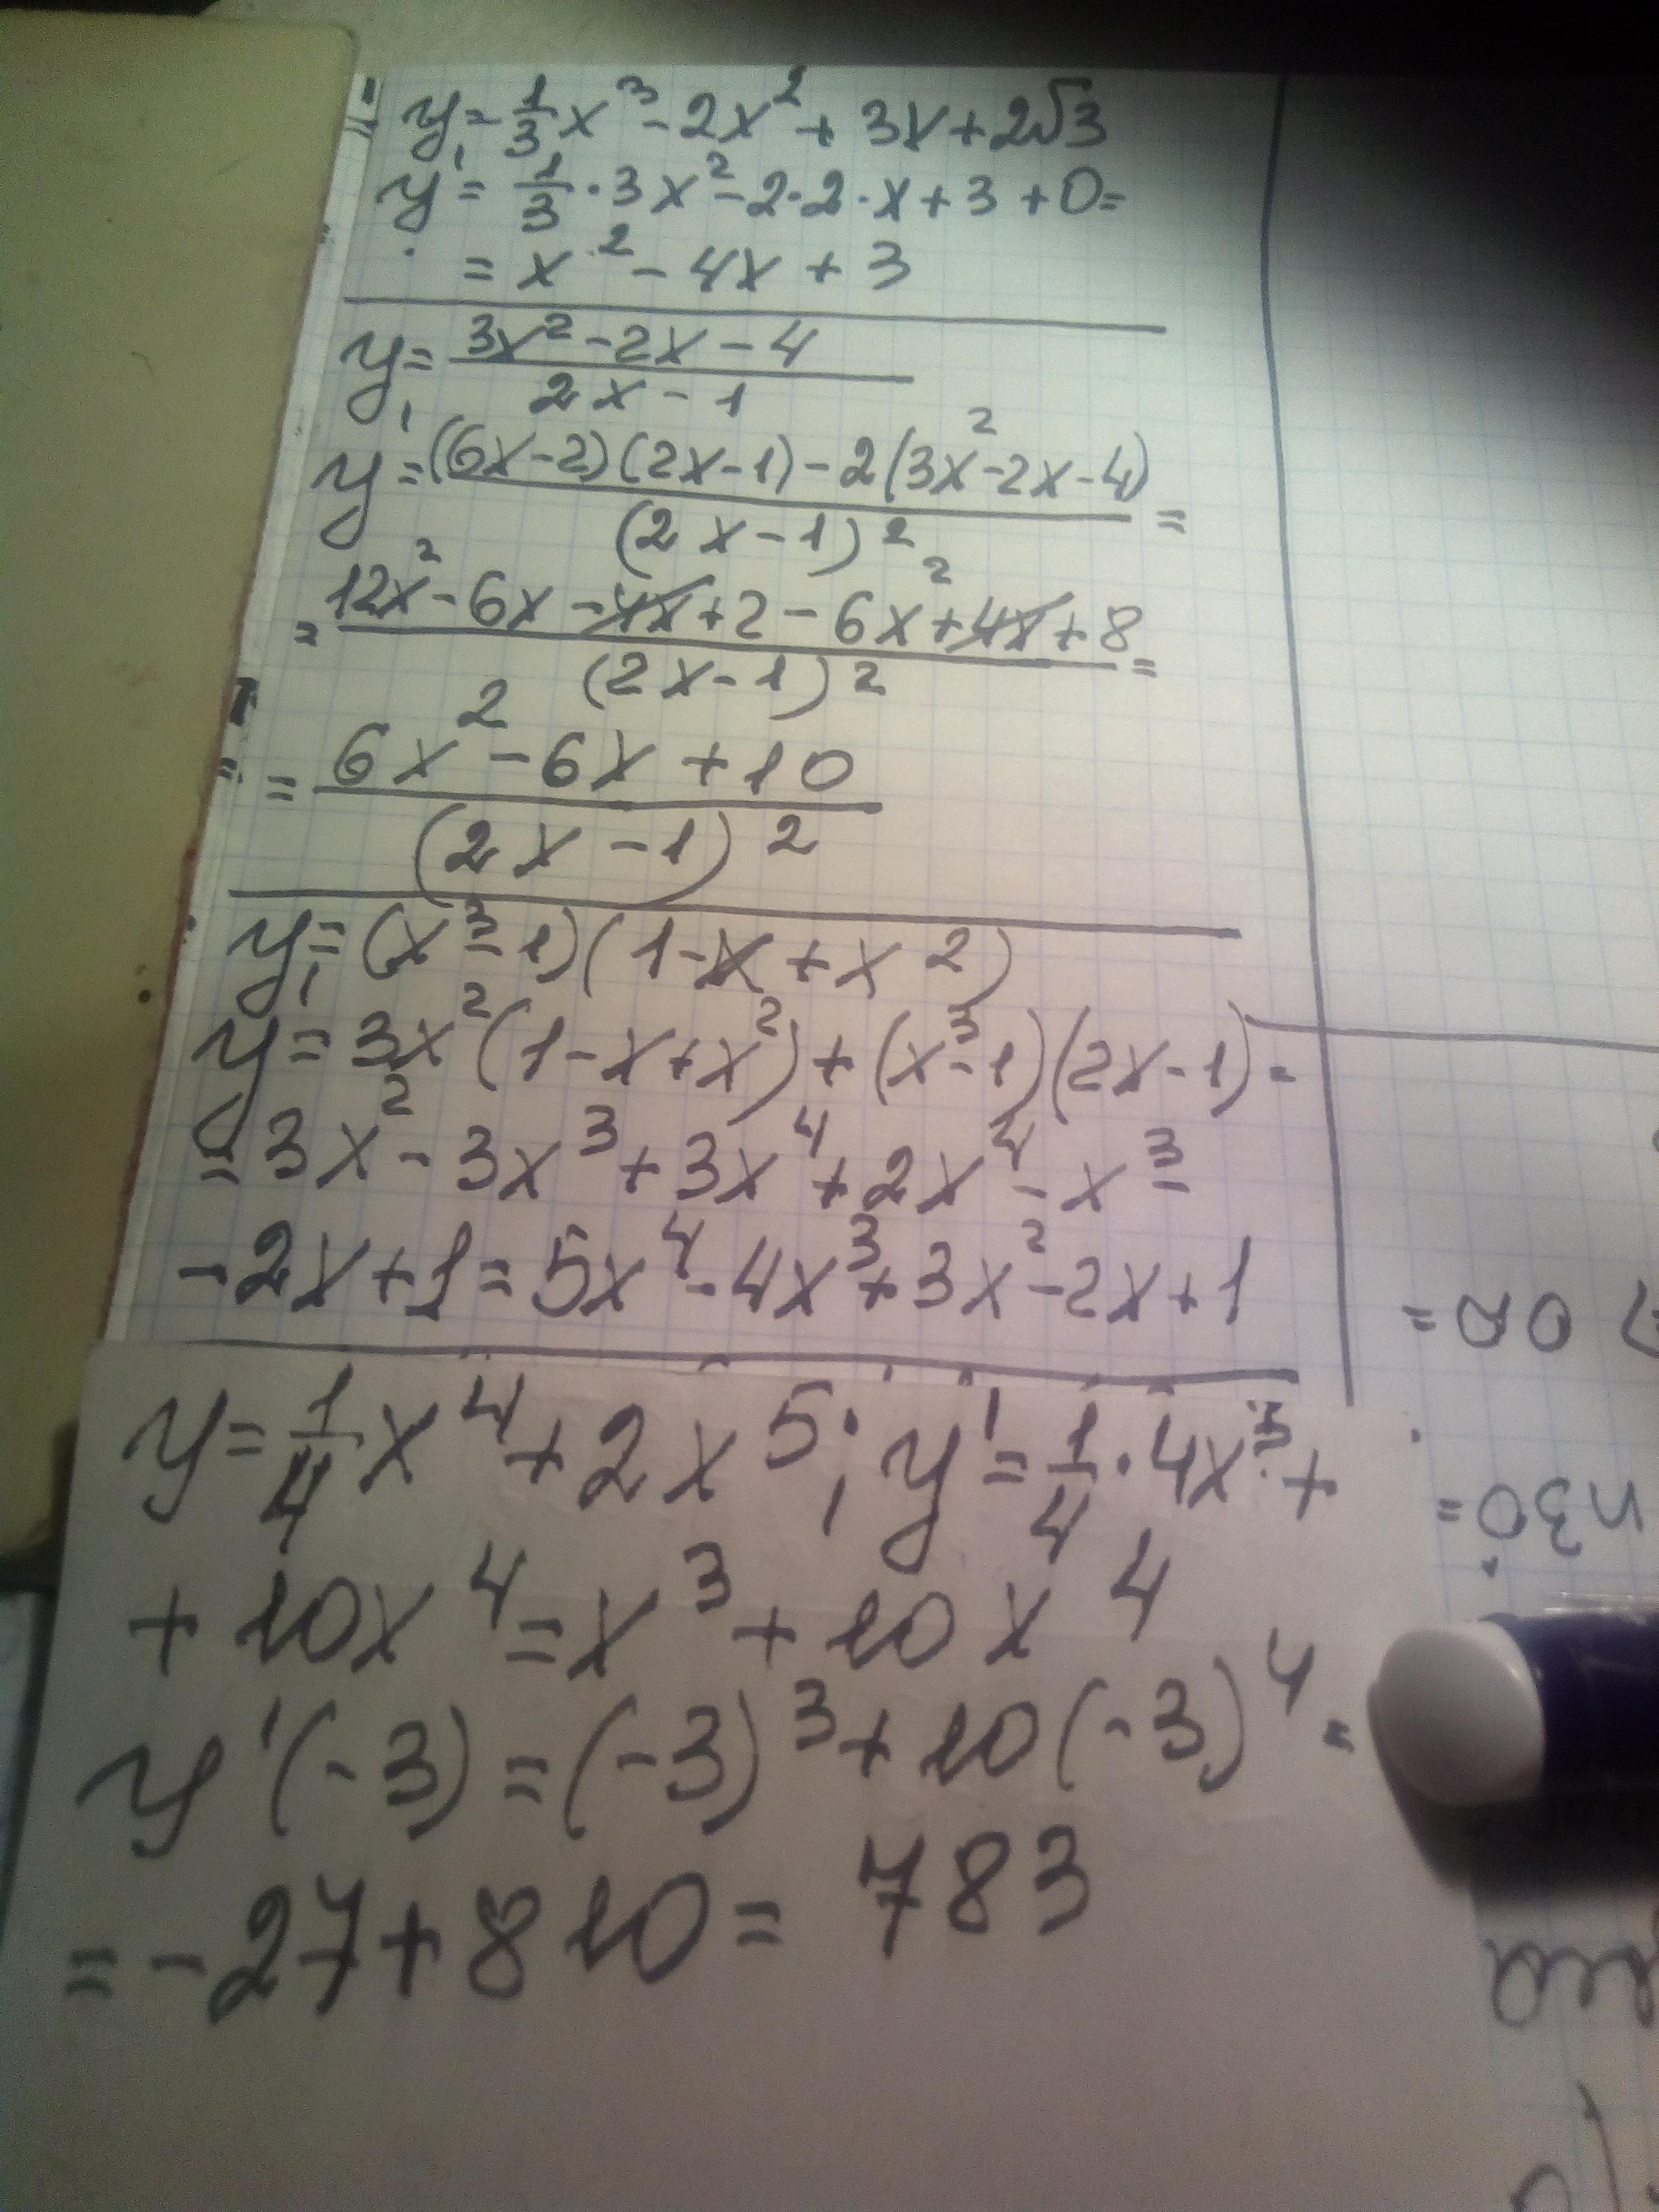 y = 1/3 x³ - 2x² + 3x + 2√3
y' = 1/3 · 3x² - 2·2·x + 3 + 0 =
= x² - 4x + 3
y = (3x² - 2x - 4)/(2x - 1)
y' = ((6x-2)(2x-1) - 2(3x²-2x-4))/(2x-1)² =
= (12x² - 6x - 4x + 2 - 6x² + 4x + 8)/(2x-1)² =
= (6x² - 6x + 10)/(2x - 1)²
y = (x³ - 1)(1 - x + x²)
y' = 3x²(1 - x + x²) + (x³ - 1)(2x - 1) =
= 3x² - 3x³ + 3x⁴ + 2x⁴ - x³ -
- 2x + 1 = 5x⁴ - 4x³ + 3x² - 2x + 1
y = 1/4 x⁴ + 2x⁵; y' = 1/4 · 4x³ +
+ 10x⁴ = x³ + 10x⁴
y'(-3) = (-3)³ + 10(-3)⁴ =
= -27 + 810 = 783